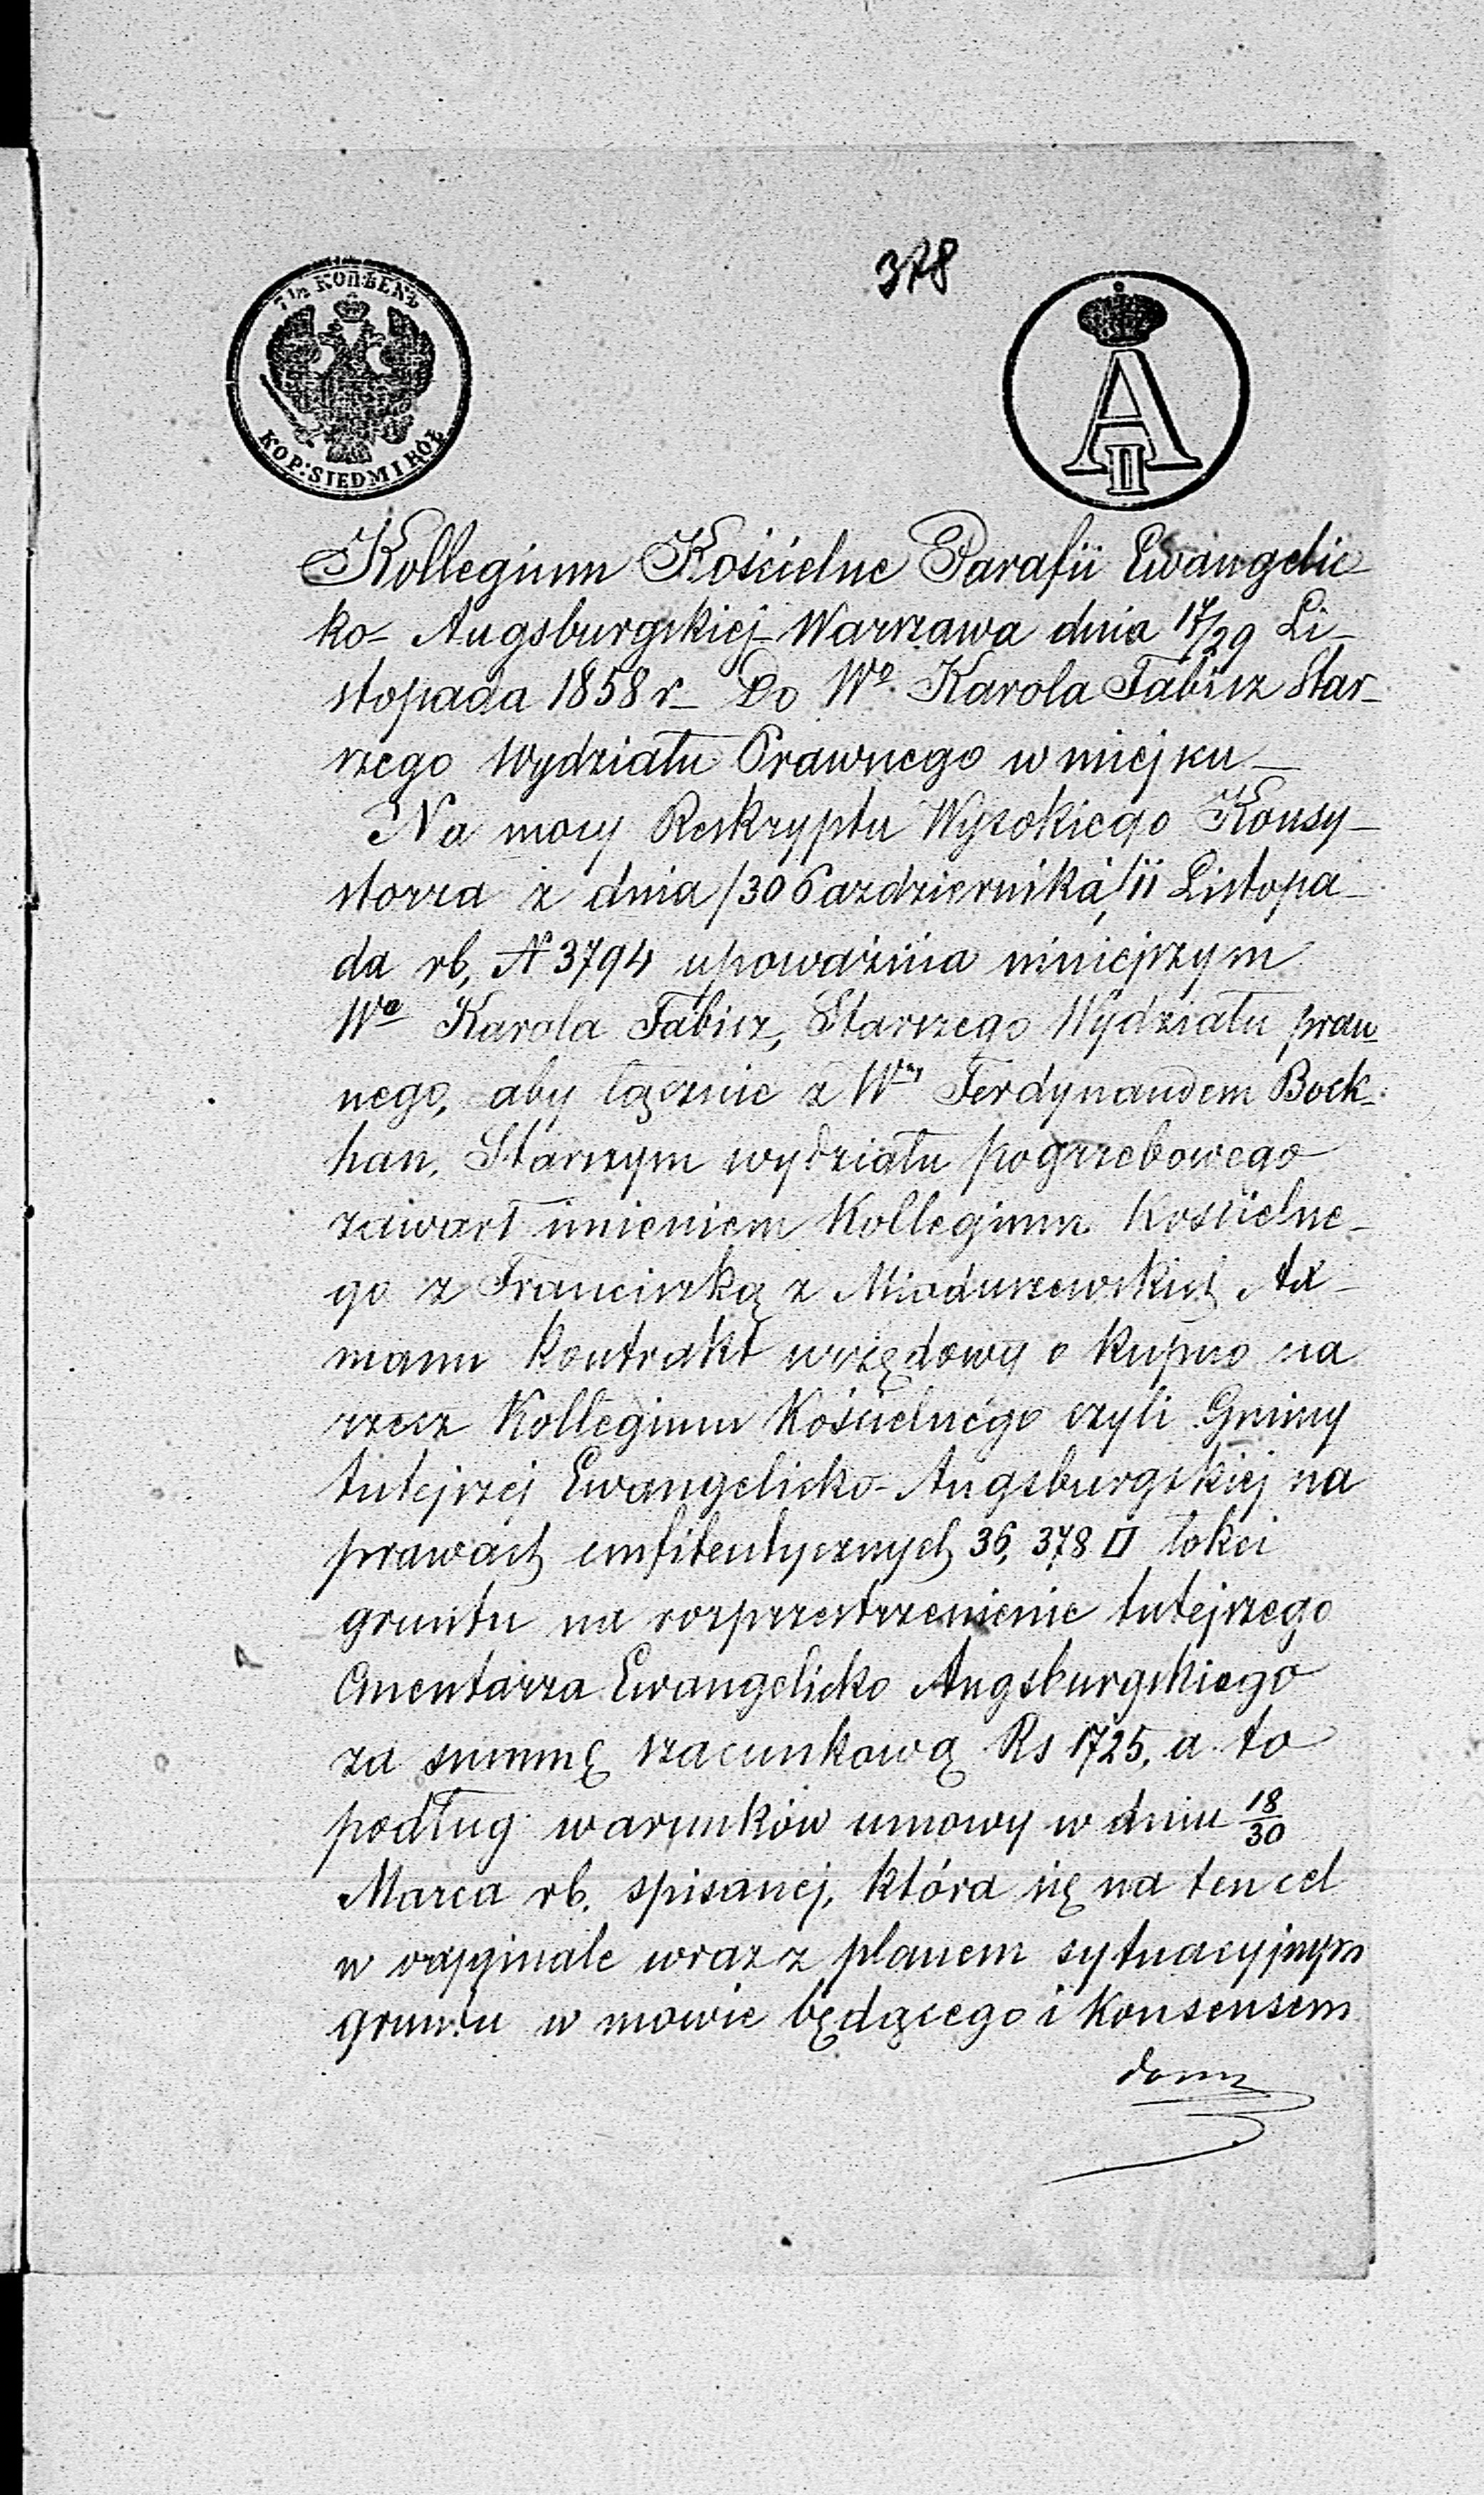 378
7½ КОПѢЕКЪ
KOP: SIEDM I PÓŁ
A II
Kollegium Kościelne Parafii Ewangelic-
ko- Augsburgskiej- Warszawa dnia 17/29 Li-
stopada 1858 r_ Do Wº Karola Fabisz Star-
szego Wydziału Prawnego w miejscu_
Na mocy Reskryptu Wysokiego Konsy-
storza z dnia /30 Pazdziernika/ 11 Listopa-
da rb, N 3794 upoważnia niniejszym
Wº Karola Fabisz, Starszego Wydziału praw
nego, aby łącznie z Wm Ferdynandem Bock-
han, Starszym wydziału pogrzebowego
zawarł imieniem Kollegium Kościelne-
go z Franciszką z Mioduszewskich
mann kontrakt urzędowy o kupno na
rzecz Kollegium Kościelnego czyli Gminy
tutejszej Ewangelicko-Augsburgskiej na
prawach emfiteutycznych 36,378 □ łokci
gruntu na rozprzestrzenienie tutejszego
Cmentarza Ewangelicko Augsburgskiego
za summę szacunkową Rs 1725, a to
podług warunków umowy w dniu 18/30
Marca rb. spisanej, która się na ten cel
w oryginale wraz z planem sytuacyjnym
gruntu w mowie będącego i Konsensem